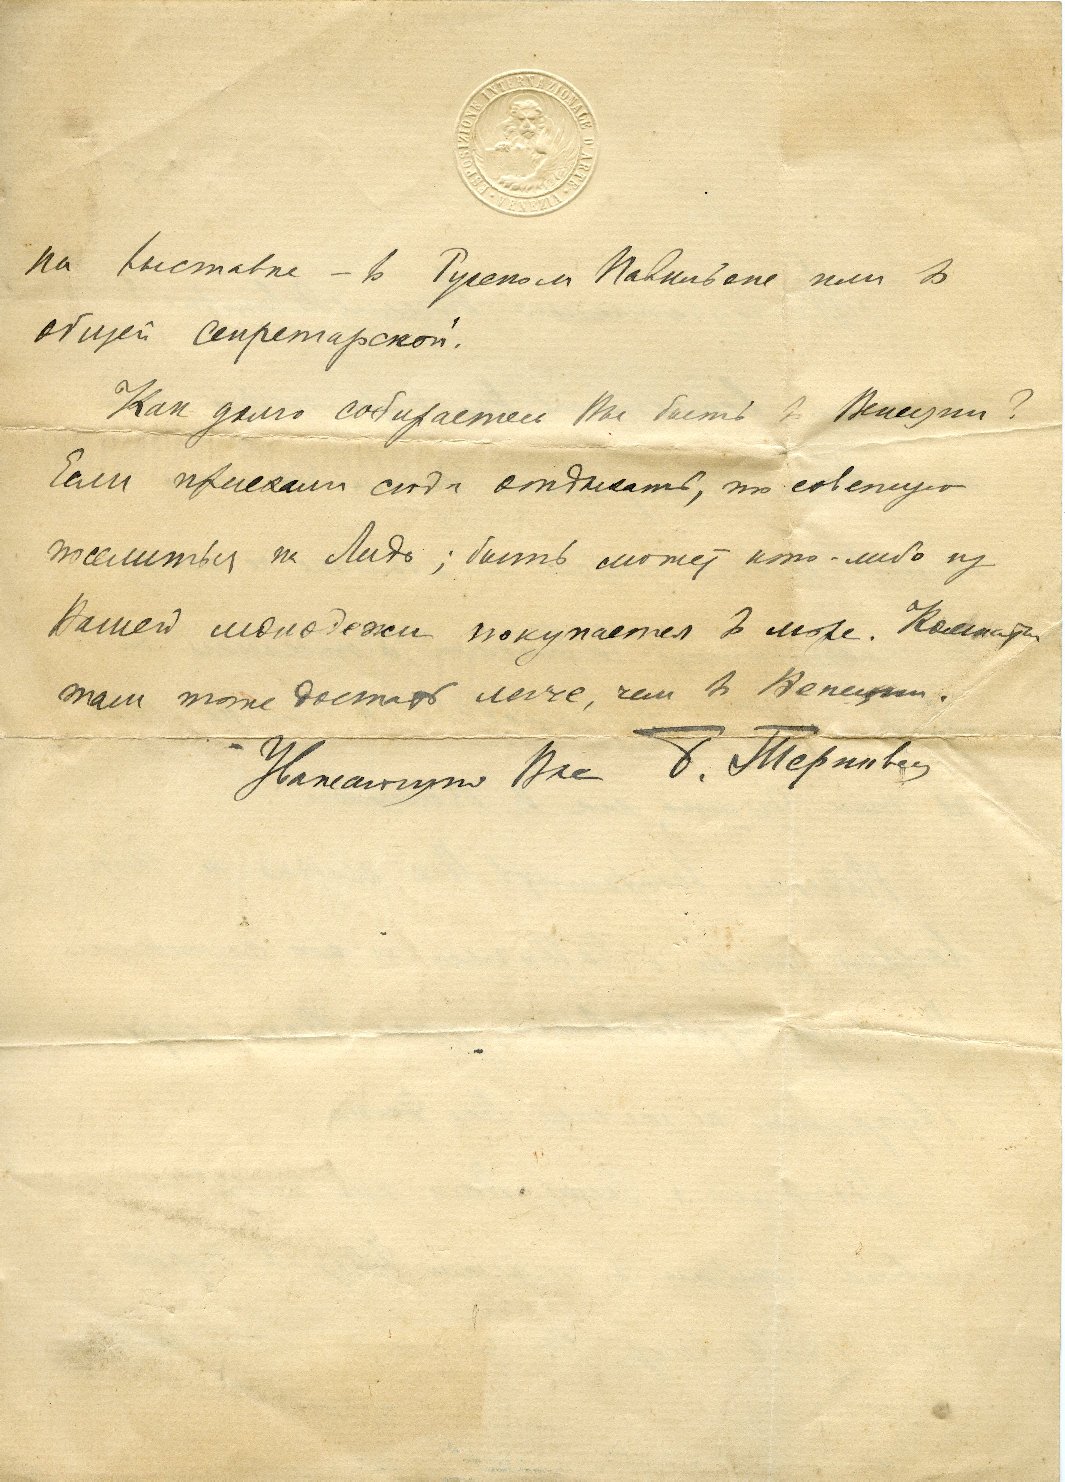 ESPOSIZIONE INTERNAZIONALE D'ARTE · VENEZIA ·
на выставке – в Русском Павильоне или в
общей секретарской.
Как долго собираетесь Вы быть в Венеции?
Если приехали сюда отдыхать, то советую
поселиться на Лидо; быть может кто-либо из
Вашей молодежи покупается в море. Комнаты
там тоже достать легче, чем в Венеции.
Уважающий Вас Б. Терновец